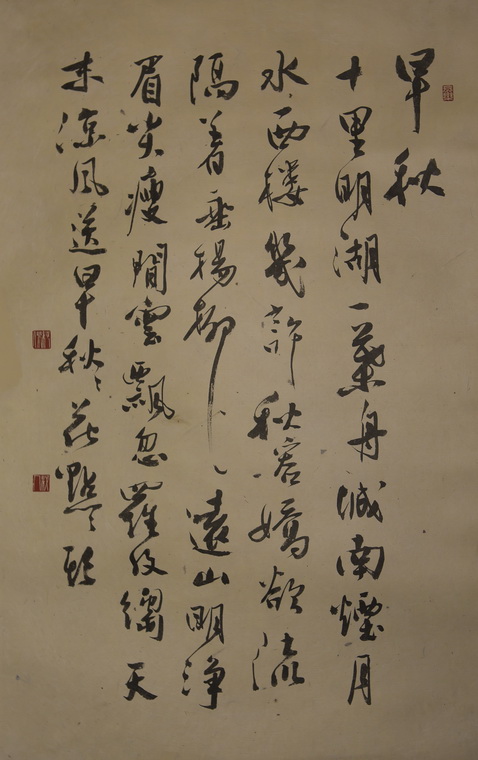 早秋
十里明湖一葉舟城南煙月
水西樓幾許秋容嬌欲流
隔着垂楊柳遠山明淨
眉尖瘦閒雲飄忽羅紋縐天
末涼風送早秋々花點々頭